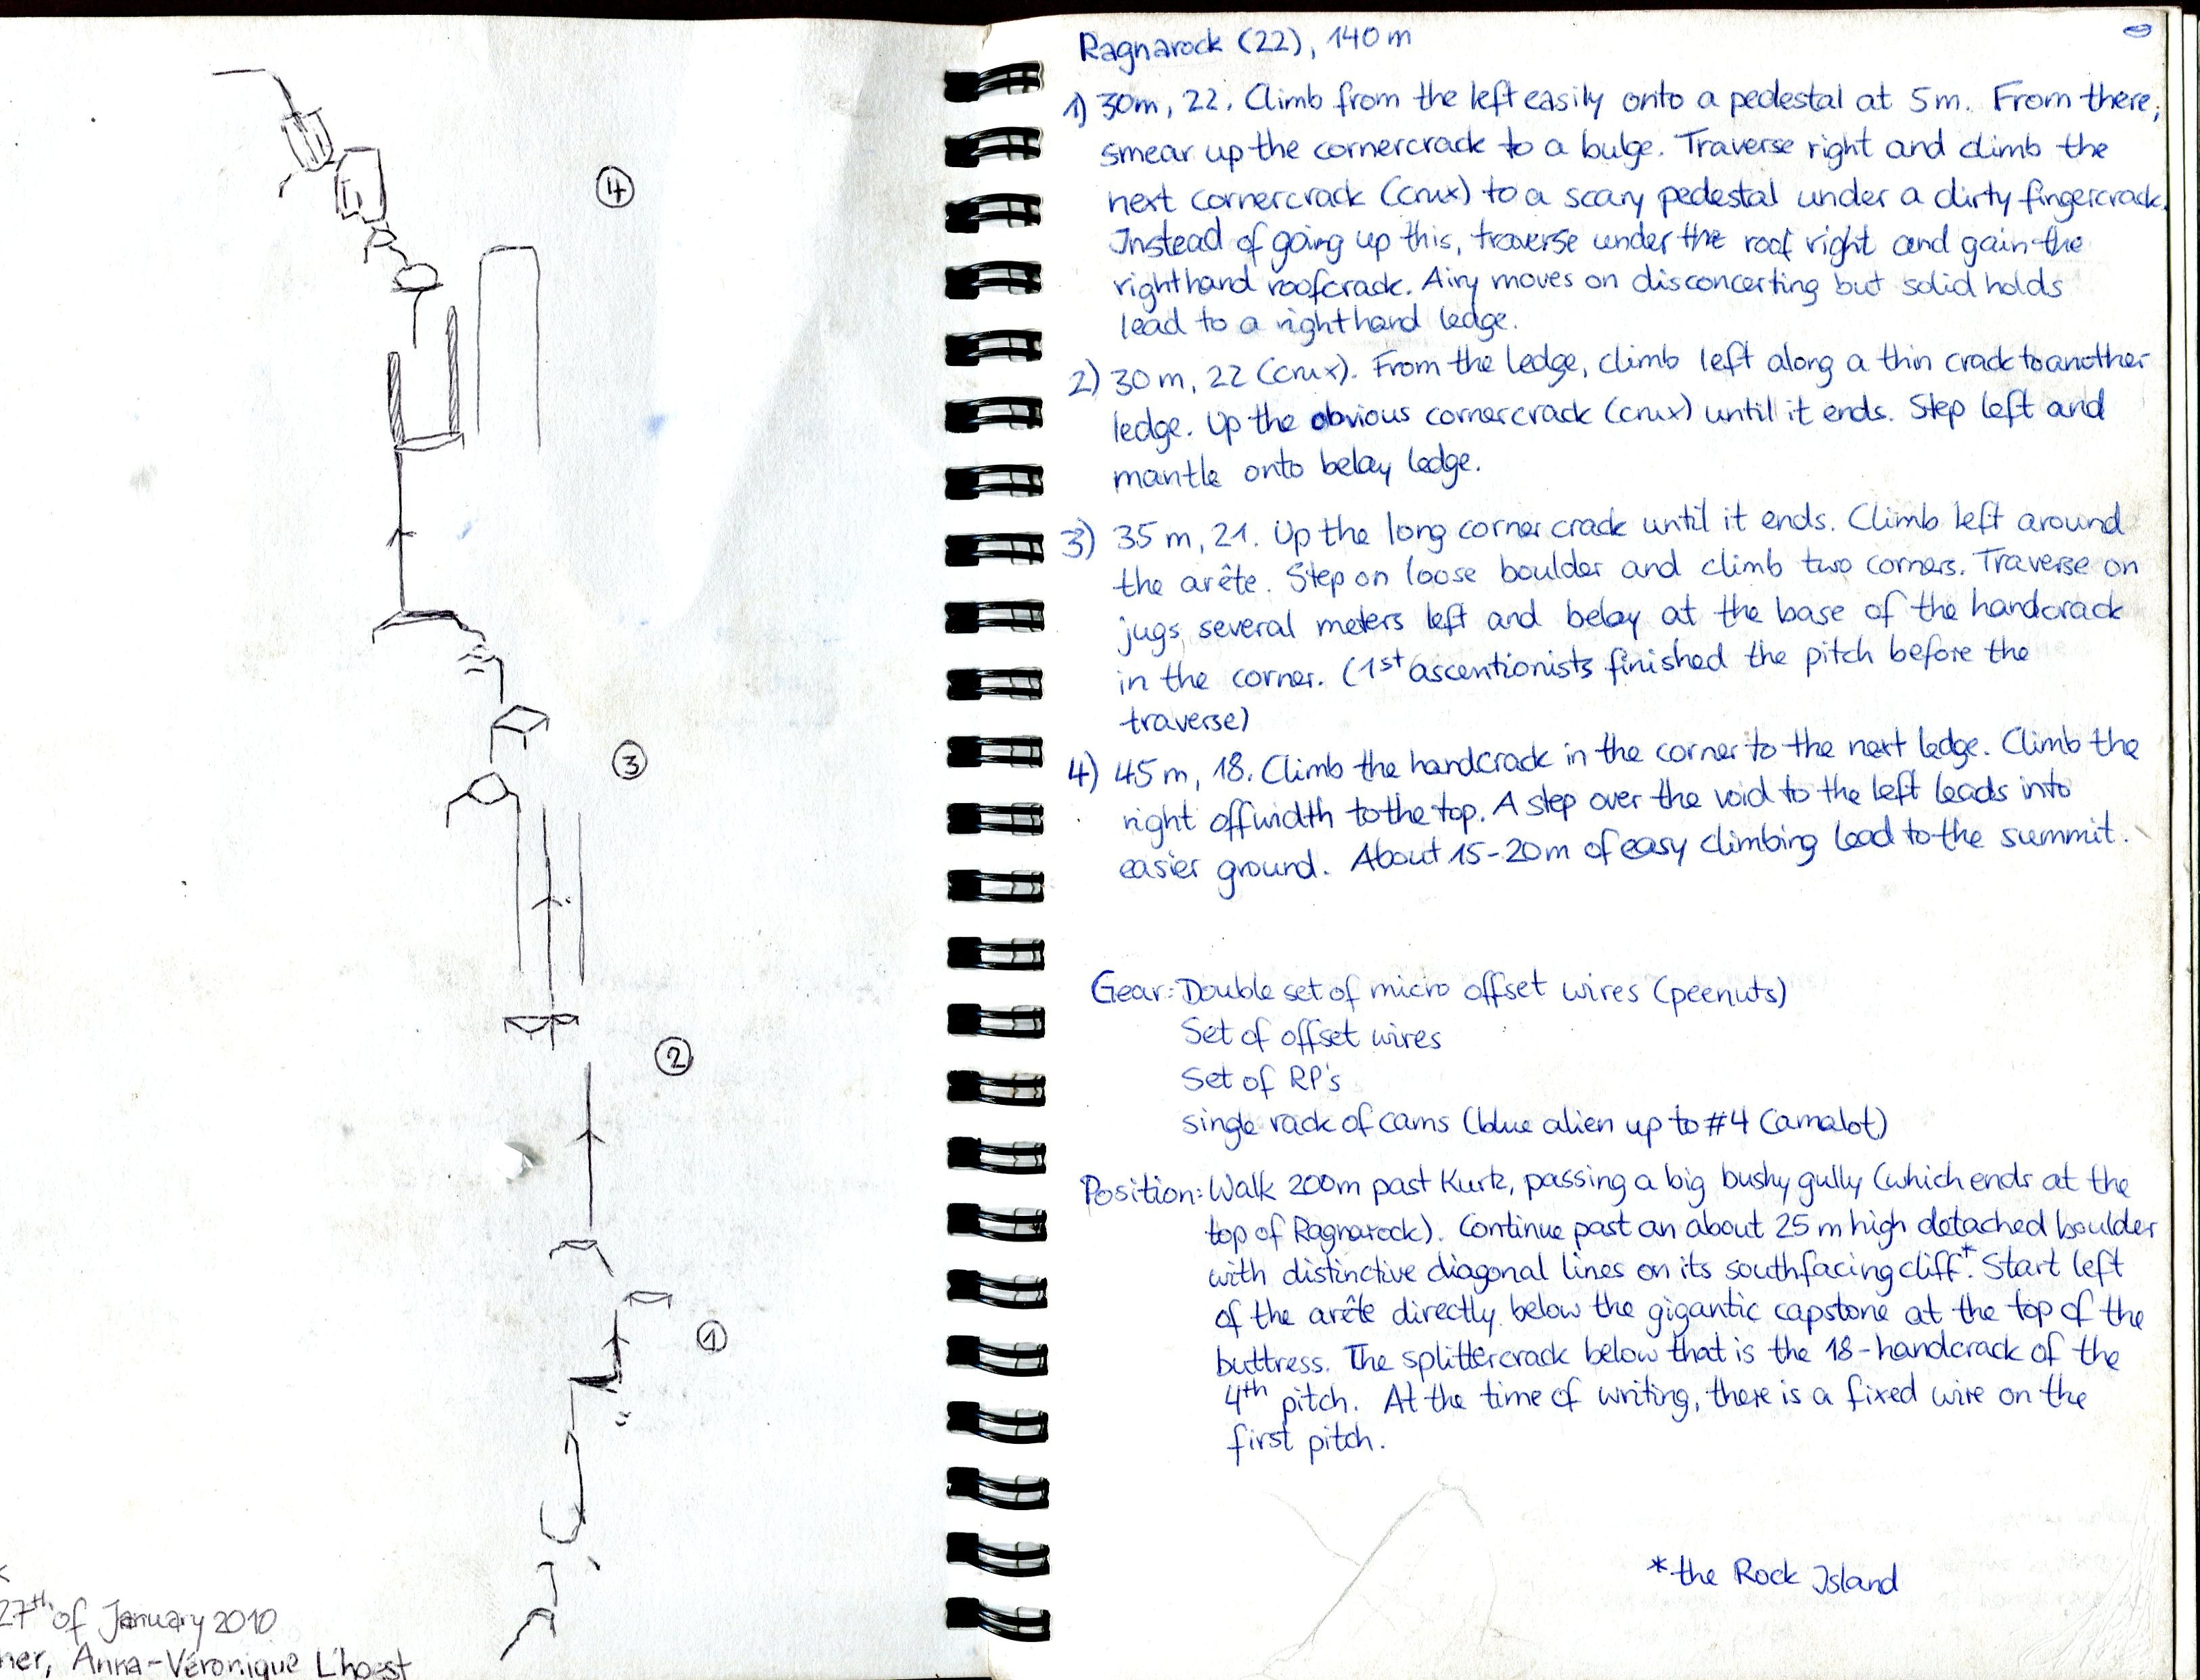 ④
③
②
①
27th of January 2010
ner, Anna-Véronique L'hoest
Ragnarock (22), 140m
1) 30m, 22. Climb from the left easily onto a pedestal at 5m. From there,
smear up the cornercrack to a bulge. Traverse right and climb the
next cornercrack (crux) to a scary pedestal under a dirty fingercrack.
Instead of going up this, traverse under the roof right and gain the
righthand roofcrack. Airy moves on disconcerting but solid holds
lead to a righthand ledge.
2) 30m, 22 (crux). From the ledge, climb left along a thin crack to another
ledge. Up the obvious cornercrack (crux) until it ends. Step left and
mantle onto belay ledge.
3) 35m, 21. Up the long corner crack until it ends. Climb left around
the arête. Step on loose boulder and climb two corners. Traverse on
jugs several meters left and belay at the base of the handcrack
in the corner. (1st ascentionists finished the pitch before the
traverse)
4) 45m, 18. Climb the handcrack in the corner to the next ledge. Climb the
right offwidth to the top. A step over the void to the left leads into
easier ground. About 15-20m of easy climbing lead to the summit.
Gear: Double set of micro offset wires (peenuts)
Set of offset wires
Set of RP's
single rack of cams (blue alien up to #4 Camalot)
Position: Walk 200m past Kurtz, passing a big bushy gully (which ends at the
top of Ragnarock). Continue past an about 25m high detached boulder
with distinctive diagonal lines on its southfacing cliff*. Start left
of the arête directly below the gigantic capstone at the top of the
buttress. The splittercrack below that is the 18-handcrack of the
4th pitch. At the time of writing, there is a fixed wire on the
first pitch.
*the Rock Island